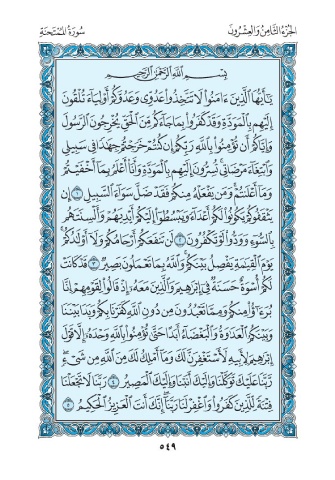 الجُزْءُ الثَّامِنُ وَالعِشْرُونَ
سُورَةُ المُمْتَحنَةِ
بِسْمِ ٱللَّهِ ٱلرَّحْمَٰنِ ٱلرَّحِيمِ
يَٰٓأَيُّهَا ٱلَّذِينَ ءَامَنُوا۟ لَا تَتَّخِذُوا۟ عَدُوِّى وَعَدُوَّكُمْ أَوْلِيَآءَ تُلْقُونَ
إِلَيْهِم بِٱلْمَوَدَّةِ وَقَدْ كَفَرُوا۟ بِمَا جَآءَكُم مِّنَ ٱلْحَقِّ يُخْرِجُونَ ٱلرَّسُولَ
وَإِيَّاكُمْ أَن تُؤْمِنُوا۟ بِٱللَّهِ رَبِّكُمْ إِن كُنتُمْ خَرَجْتُمْ جِهَٰدًا فِى سَبِيلِى
وَٱبْتِغَآءَ مَرْضَاتِى تُسِرُّونَ إِلَيْهِم بِٱلْمَوَدَّةِ وَأَنَا۠ أَعْلَمُ بِمَآ أَخْفَيْتُمْ
وَمَآ أَعْلَنتُمْ وَمَن يَفْعَلْهُ مِنكُمْ فَقَدْ ضَلَّ سَوَآءَ ٱلسَّبِيلِ ١ إِن
يَثْقَفُوكُمْ يَكُونُوا۟ لَكُمْ أَعْدَآءً وَيَبْسُطُوٓا۟ إِلَيْكُمْ أَيْدِيَهُمْ وَأَلْسِنَتَهُم
بِٱلسُّوٓءِ وَوَدُّوا۟ لَوْ تَكْفُرُونَ ٢ لَن تَنفَعَكُمْ أَرْحَامُكُمْ وَلَآ أَوْلَٰدُكُمْ
يَوْمَ ٱلْقِيَٰمَةِ يَفْصِلُ بَيْنَكُمْ وَٱللَّهُ بِمَا تَعْمَلُونَ بَصِيرٌ ٣ قَدْ كَانَتْ
لَكُمْ أُسْوَةٌ حَسَنَةٌ فِىٓ إِبْرَٰهِيمَ وَٱلَّذِينَ مَعَهُۥٓ إِذْ قَالُوا۟ لِقَوْمِهِمْ إِنَّا
بُرَءَٰٓؤُا۟ مِنكُمْ وَمِمَّا تَعْبُدُونَ مِن دُونِ ٱللَّهِ كَفَرْنَا بِكُمْ وَبَدَا بَيْنَنَا
وَبَيْنَكُمُ ٱلْعَدَٰوَةُ وَٱلْبَغْضَآءُ أَبَدًا حَتَّىٰ تُؤْمِنُوا۟ بِٱللَّهِ وَحْدَهُۥٓ إِلَّا قَوْلَ
إِبْرَٰهِيمَ لِأَبِيهِ لَأَسْتَغْفِرَنَّ لَكَ وَمَآ أَمْلِكُ لَكَ مِنَ ٱللَّهِ مِن شَىْءٍ
رَّبَّنَا عَلَيْكَ تَوَكَّلْنَا وَإِلَيْكَ أَنَبْنَا وَإِلَيْكَ ٱلْمَصِيرُ ٤ رَبَّنَا لَا تَجْعَلْنَا
فِتْنَةً لِّلَّذِينَ كَفَرُوا۟ وَٱغْفِرْ لَنَا رَبَّنَآ إِنَّكَ أَنتَ ٱلْعَزِيزُ ٱلْحَكِيمُ ٥
٥٤٩